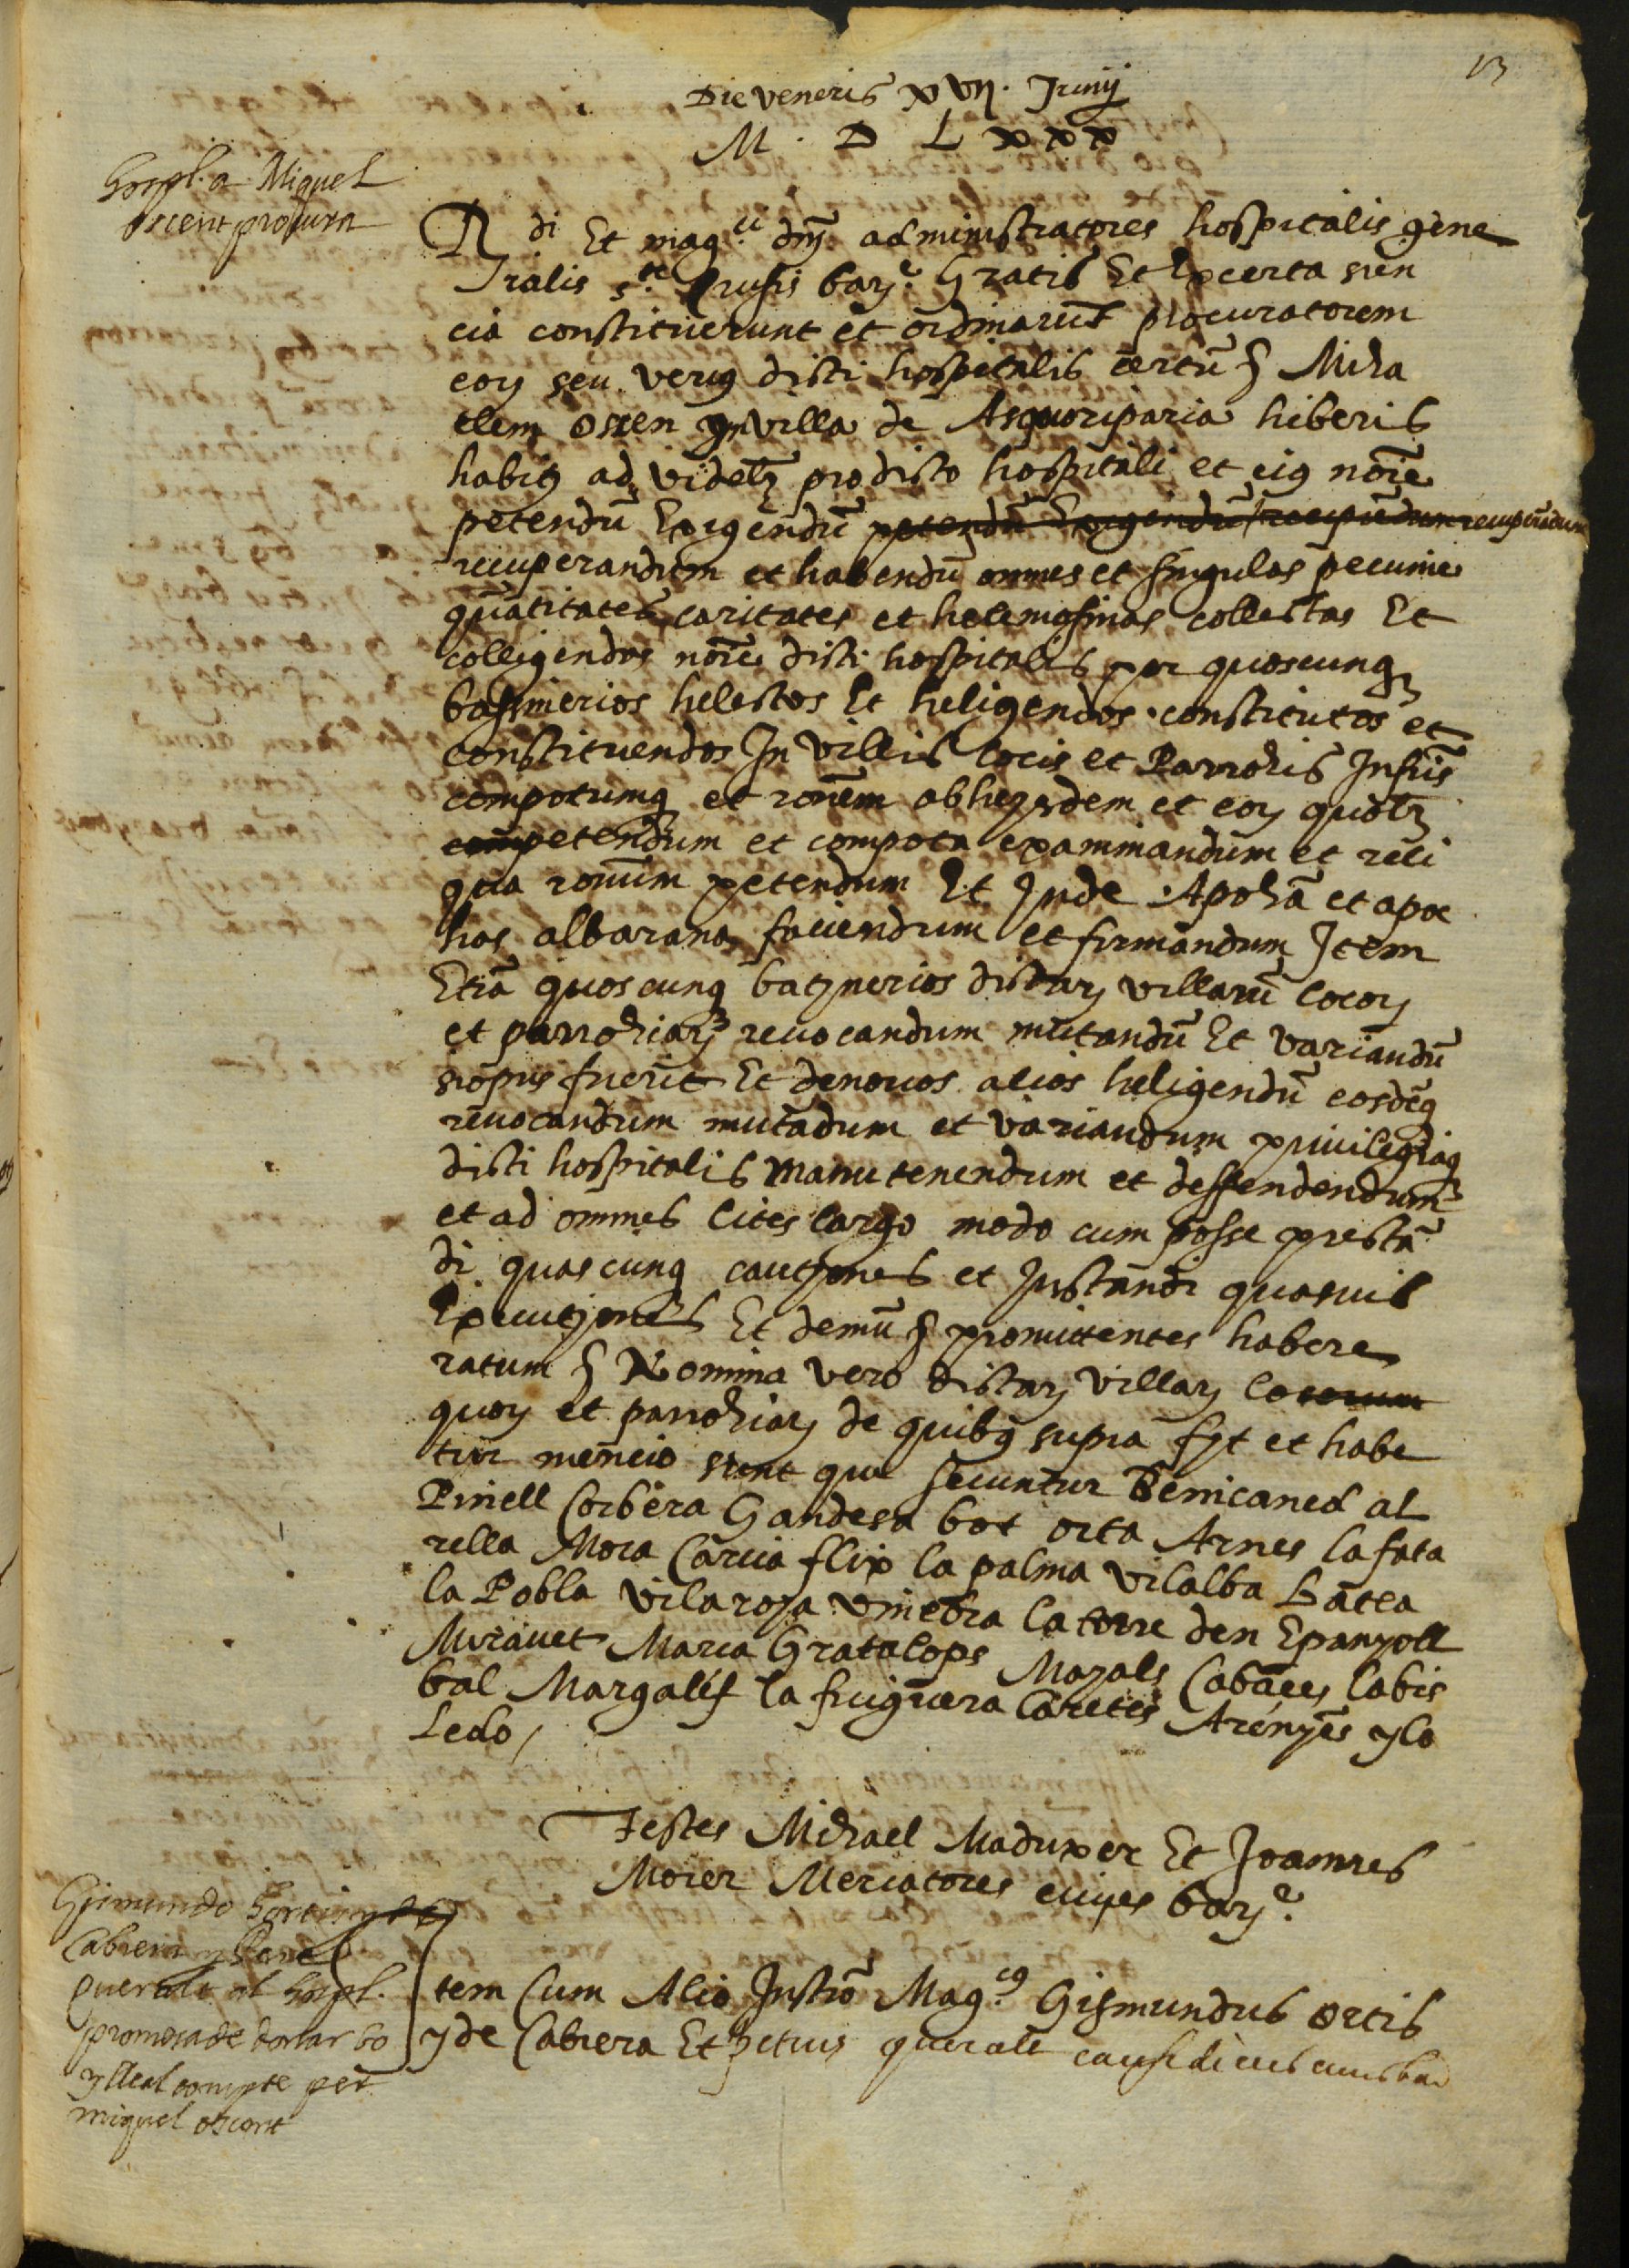 13
Die veneris xvij. Junij
M. D L x x x
hospl. a Miquel
oscent procura
Rdi Et mag.ci dnj administratores hospitalis gene
ralis s.te Crusis barẽ. Gratis Et Ex certa sien
cia constituerunt et ordinarũt procuratorem
eorj seu verius dicti hospitalis certũ § Micha
elem Ossen In villa de Asquoriparia hiberis
habitz ad videlz pro dicto hospitali et eius noĩe
petendũ Exigendũ petendũ Exigendũ recipiendum recipiendum
recuperandum et habendũ omnes et singulas pecunie
quãtitates caritates et helemosinas collectas Et
colligendas noĩe dicti hospitalis per quoscunq
bassinerios helectos Et heligendos constitutos et
constituendos In villis locis et Parrochis Infris
compotumq et ronem ab hejsdem et eorj quolz
competendum et compota examinandum et reli
qua ronum petendum Et Inde Apochã et apoc
has albarana faciendum et firmandum Item
Etiã quoscunq batjnerios dictarj villarũ locorj
et parrochiarj reuocandum mutandũ Et variandũ
si opus fuerit Et de nouos alios heligendũ eosdẽq
reuocandum mutãdum et variandum priuilegiaq
dicti hospitalis manutenendum et deffendendum
et ad omnes lites largo modo cum posse prestã
di quascunq cautjones et Instandi quasuis
Executjones Et demũ § promittentes habere
ratum § Nomina vero dictarj villarj locorum
quorj et parrochiarj de quibus supra fit et habe
tur mencio sunt que secuntur Benicanet al
Pinell Corbera Gandesa bot orta Arnes la fata
rella Mora Garcia flix la palma vilalba Batea
la Pobla vilaroja vinebra la torre den Epanyoll
Mirauet Marca Gratalops Mazals Cabaces labis
bal Margalef la fuiguera Caretes Arenyes y lo
Ledo,
Testes Michael Maduxer Et Joannes
Morer Mercatores ciues barẽ.
Gjsmundo hortis y de
Cabrera y Pere
Queralt al hospl.
promesa de donar bo
y lleal compte per
miquel oscent
Item Cum Alio Instrõ Mag.cus Gismundus ortis
y de Cabrera Et petrus queralt causidicus ciuis bar